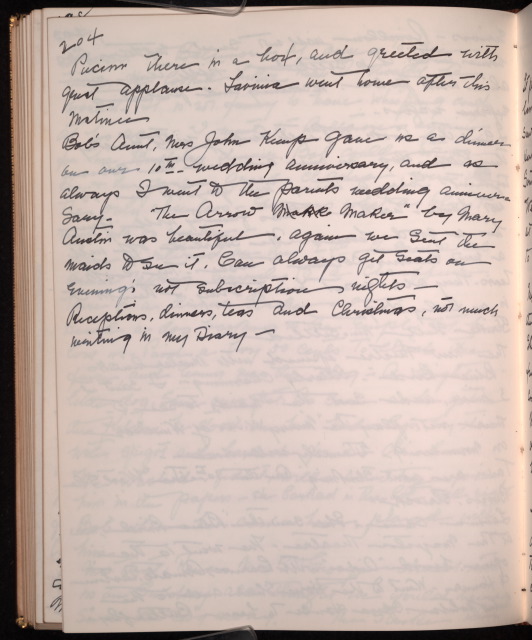 204
Puccini there in a box, and greeted with
great applause. Lavinia went home after this
Matinee
Bob's Aunt, Mrs John Kemp gave us a dinner
on our 10TH wedding anniversary, and as
always I went to the parents wedding anniver
sary. The Arrow Maker" by Mary
Austin was beautiful, again we sent the
maids to see it. Can always get seats on
evenings not subscription nights —
Receptions, dinners, teas and Christmas, not much
writing in my Diary —